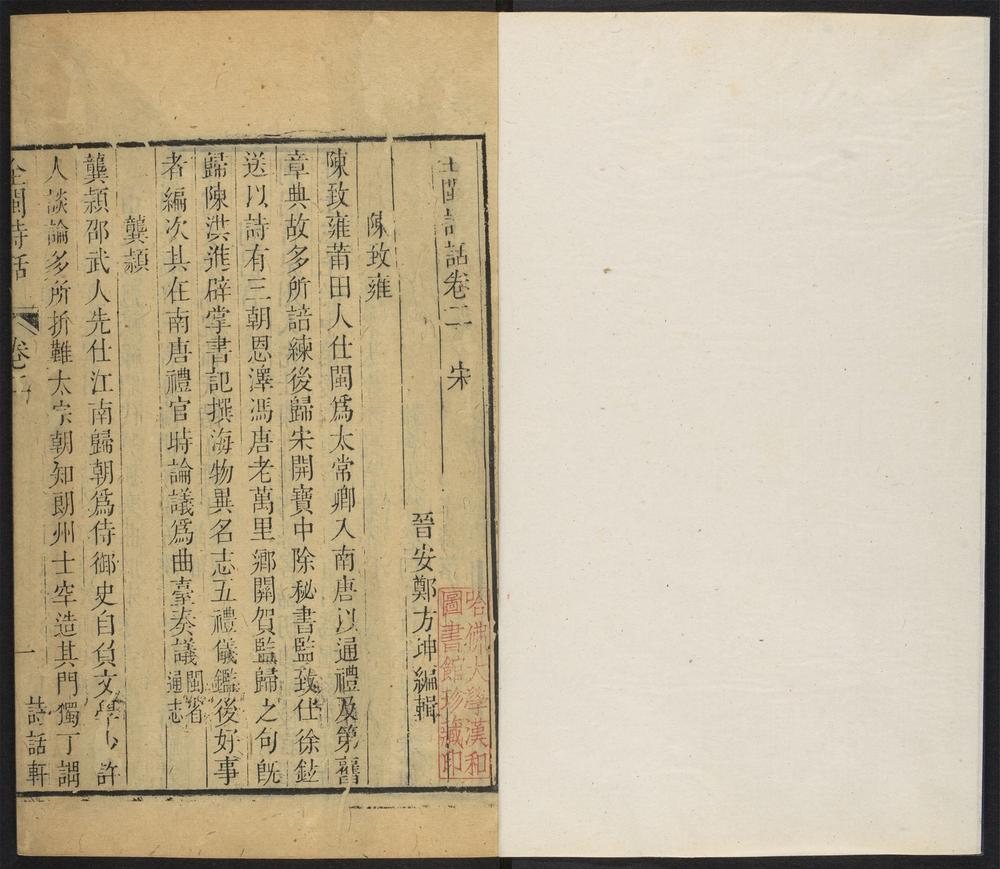 全閩詩話卷二　宋
晉安鄭方坤編輯
陳致雍
陳致雍莆田人仕閩爲太常卿入南唐以通禮及第舊
章典故多所諳練後歸宋開寶中除秘書監致仕徐鉉
送以詩有三朝恩澤馮唐老萬里鄉關賀監歸之句旣
歸陳洪進辟掌書記撰海物異名志五禮儀鑑後好事
者編次其在南唐禮官時論議爲曲臺奏議閩省通志
龔穎
龔穎邵武人先仕江南歸朝爲侍御史自負文學少許
人談論多所折難太宗朝知朗州士罕造其門獨丁謂
全閩詩話　卷二　一　詩話軒
哈佛大學漢和
圖書館珍藏印